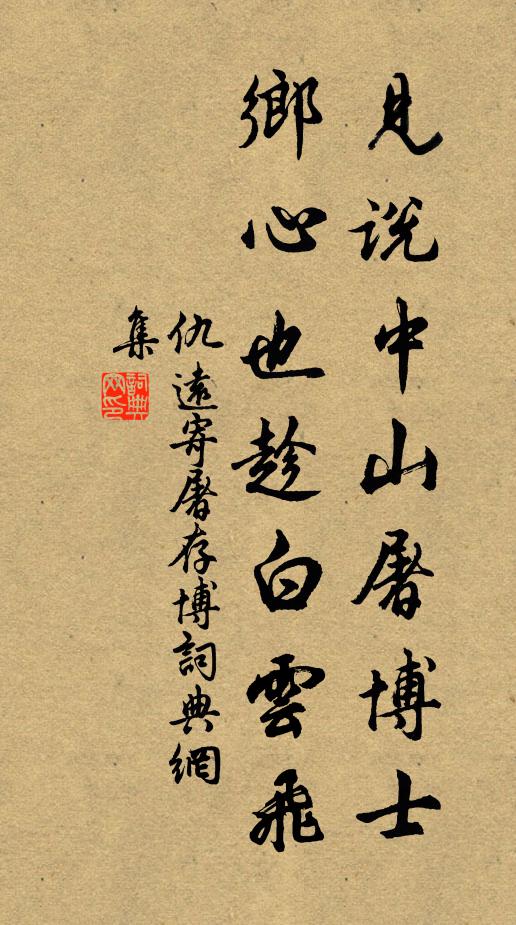 見説中山屠博士
鄉心也趁白雲飛
仇遠寄屠存博詞典網
集
詞典